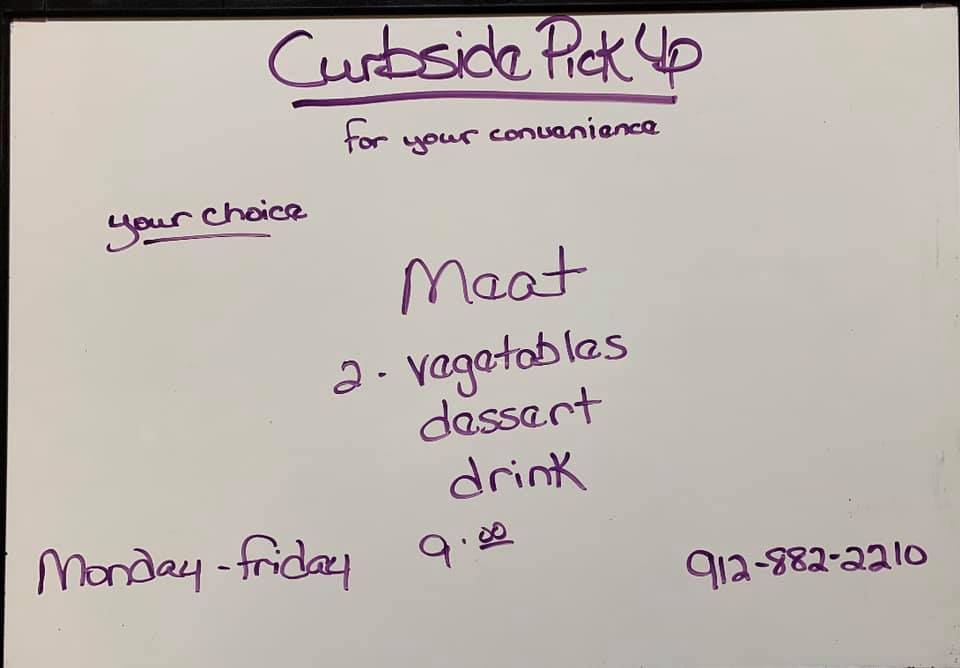 Curbside Pick Up
for your convenience
your choice
Meat
2. vegetables
dessert
drink
Monday-friday 9.00 912-882-2210